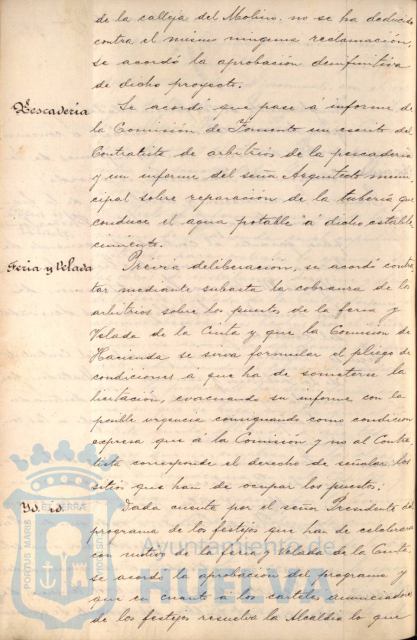 de la calleja del Molino, no se ha deducido
contra el mismo ninguna reclamación,
se acordó la aprobación demfinitiva
de dicho proyecto.
Pescadería
Se acordó que pace á informe de
la Comisión de Fomento un escrito del
Contratista de arbitrios de la pescadería
y un informe del señor Arquitecto muni
cipal sobre reparación de la tubería que
conduce el agua potable á dicho estable
cimiento.
Feria y Velada
Previa deliberación, se acordó contra
tar mediante subasta la cobranza de los
arbitrios sobre los puestos de la feria y
Velada de la Cinta y que la Comisión de
Hacienda se sirva formular el pliego de
condiciones á que ha de someterse la
licitación, evacuando su informe con la
posible urgencia consignando como condición
expresa que á la Comisión y no al Contra
tista corresponde el derecho de señalar los
sitios que han de ocupar los puestos.
Yd. id.
Dada cuenta por el señor Presidente del
programa de los festejos que han de celebrarse
con motivo de la feria y Velada de la Cinta,
se acordó la aprobación del programa y
que en cuanto á los carteles anunciadores
de los festejos resuelva la Alcaldía lo que
PORTUS MARIS ET TERRAE CUSTODIA
Ayuntamiento de
HUELVA